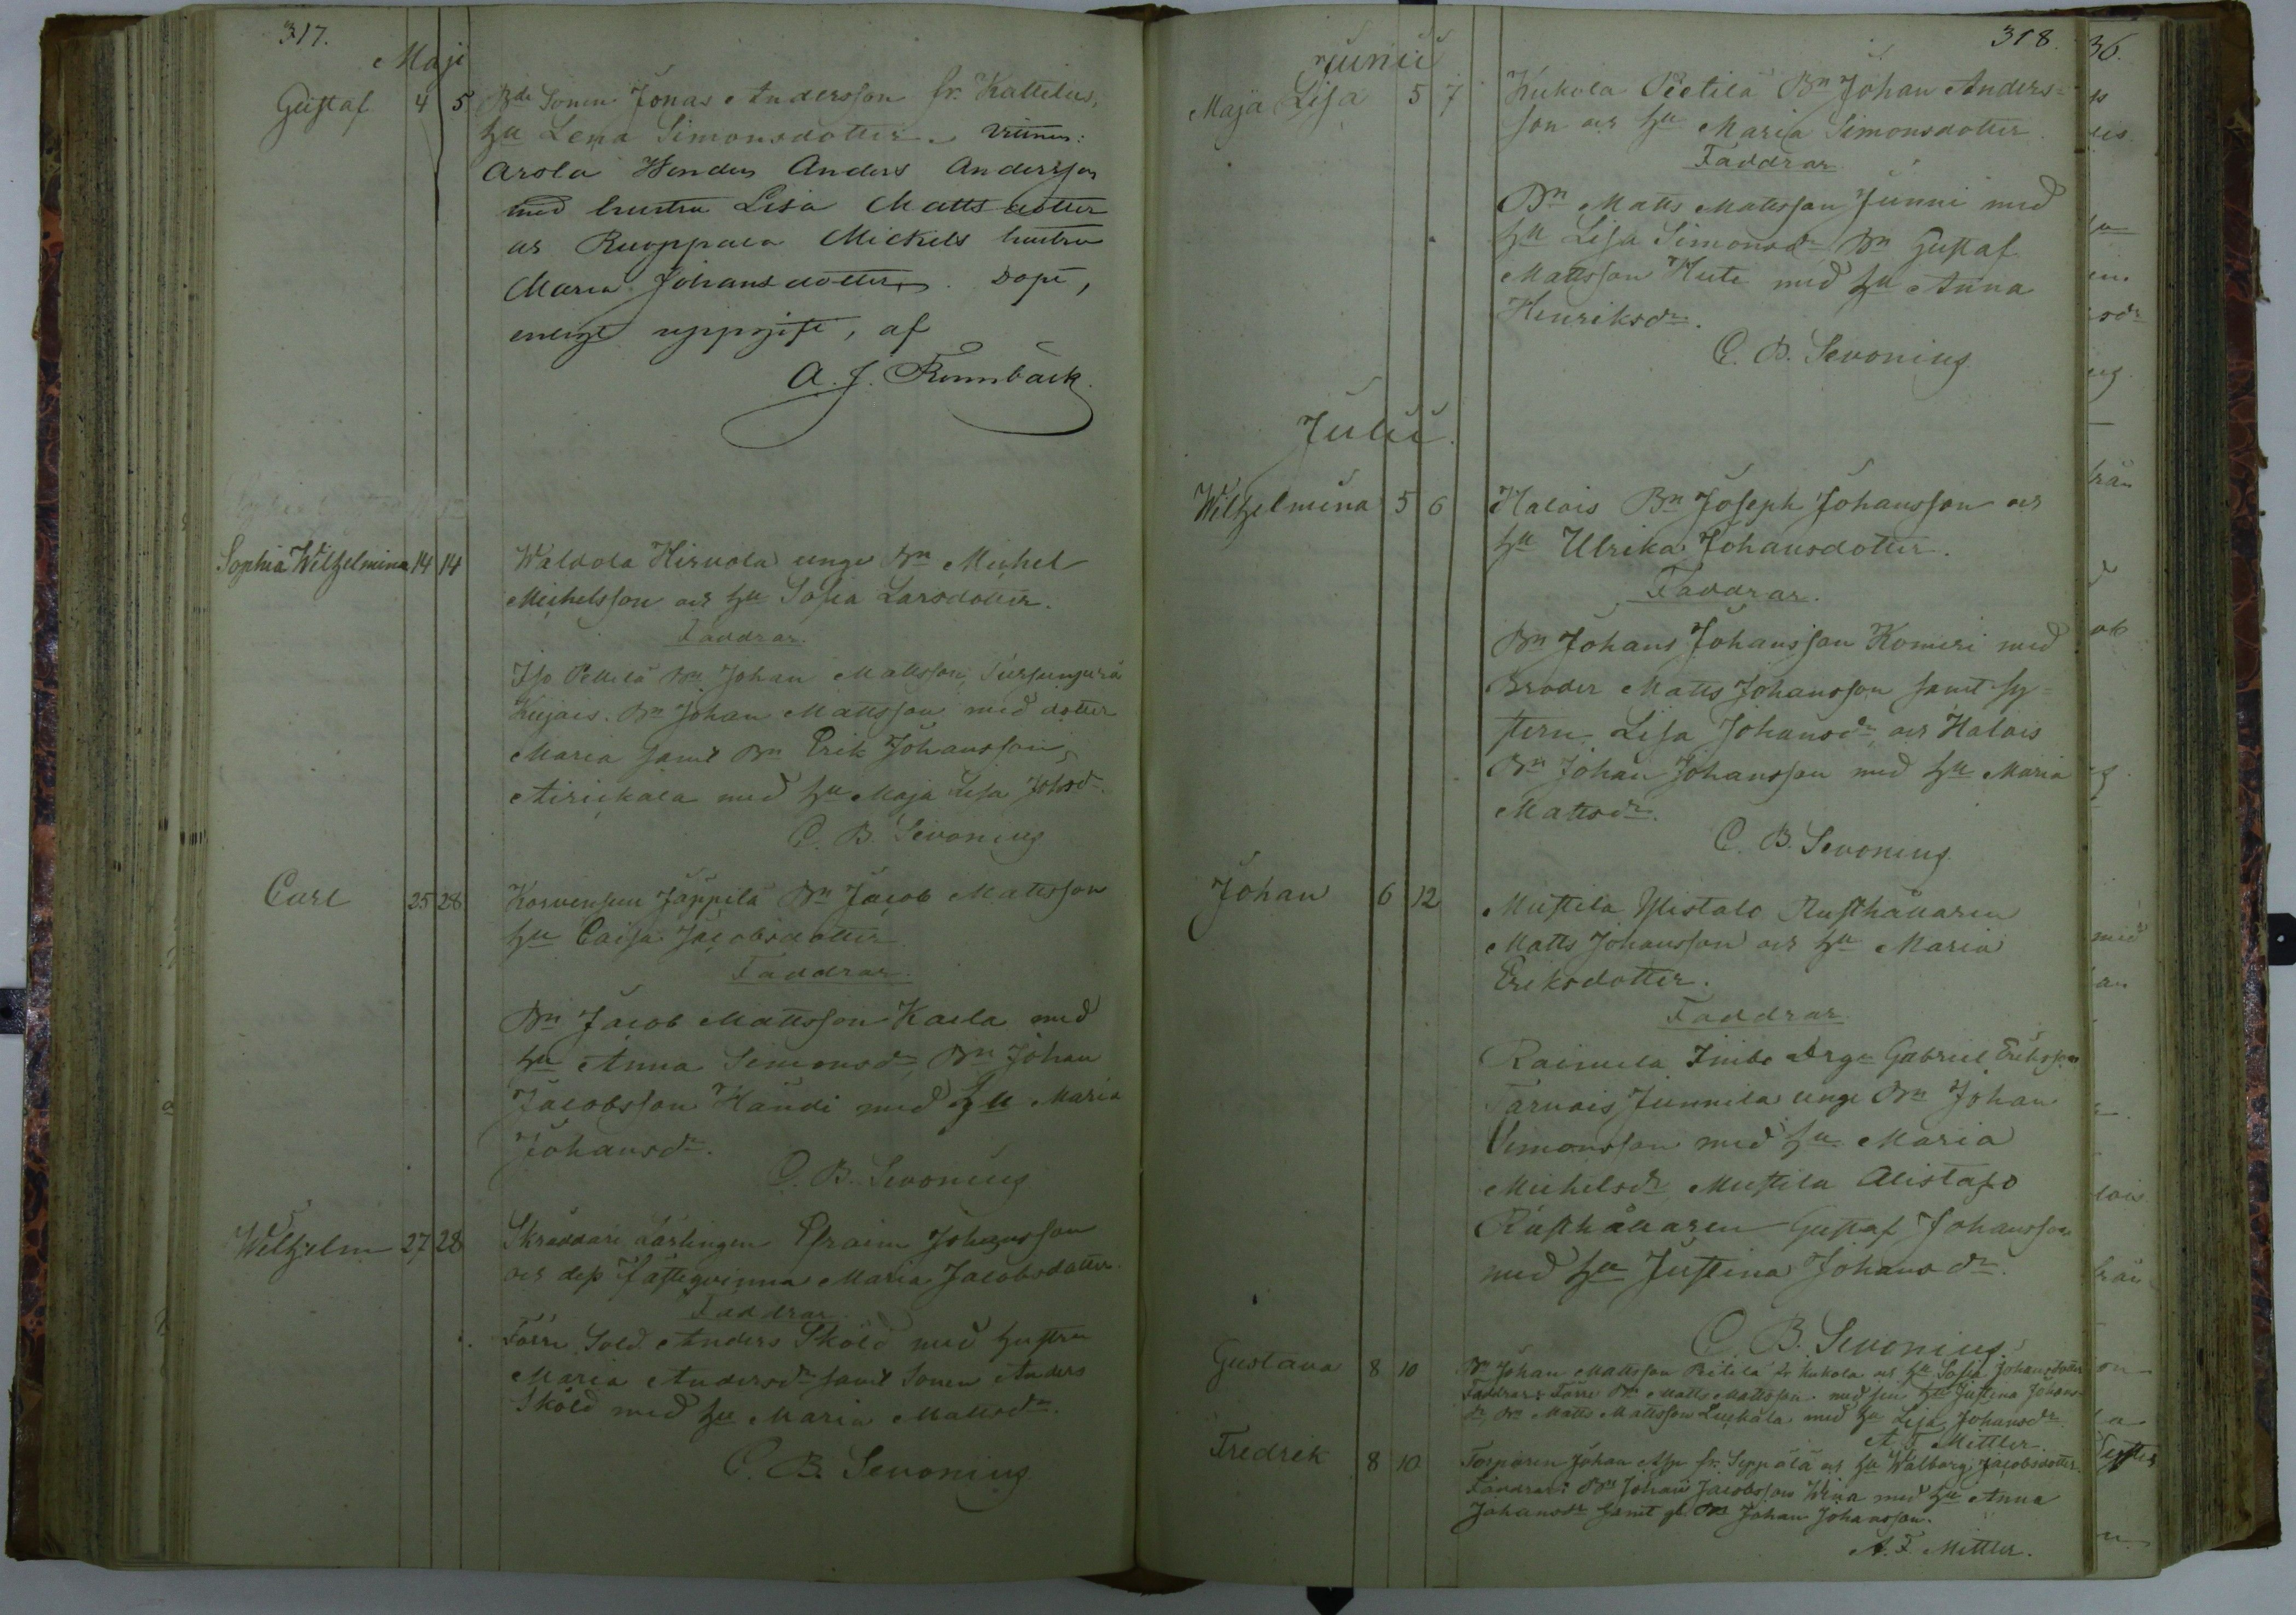 317.
Maji
Gustaf 4 5 Bde Sonen Jonas Andersson fr. Kattelus,
hu Lena Simonsdotter. Vittnen:
Arola Hender Anders Andersson
med hustru Lisa Mattsdotter
och Ruoppala Mickels hustru
Maria Johansdotter. Döpt,
enligt uppgift, af
A. J. Rennbäck.
Sophia Wilhelmina 14 14 Waldola Hirvola unge Bn Michel
Michelsson och hu Sofia Larsdotter.
Faddrar.
Iso Pettilä Bn Johan Mattsson,
Kujais. Bn Johan Mattsson med dotter
Maria samt Bn Erik Johansson
Airickala med hu Maja Lisa Johsdr.
C. B. Sevonius
Carl 25 28 Korvensuu Jäppilä Bn Jacob Mattsson
hu Caisa Jacobsdotter
Faddrar.
Bn Jacob Mattsson Kaila med
hu Anna Simonsdr, Bn Johan
Jacobsson Handi med hu Maria
Johansdr.
C. B. Sevonius
Wilhelm 27 28 Skräddari Lärlingen Efraim Johansson
och dess fästeqvinna Maria Jacobsdotter.
Faddrar
Förre Sold. Anders Sköld med hustru
Maria Andersdr samt Sonen Anders
Sköld med hu Maria Mattsdr.
C. B. Sevonius
318.
Junii
Maja Lisa 5 7 Kukola Pietilä Bn Johan Anders=
son och hu Maria Simonsdotter.
Faddrar
Bn Matts Mattsson Junni med
hu Lisa Simonsdr Bn Gustaf
Mattsson Huti med hu Anna
Henriksdr.
C. B. Sevonius
Julii.
Wilhelmina 5 6 Halois Bn Joseph Johansson och
hu Ulrika Johansdotter.
Faddrar.
Bn Johans Johansson Komeri med
Broder Matts Johansson samt sy=
stern Lisa Johansdr, och Halois
Bn Johan Johansson med hu Maria
Mattsdr.
C. B. Sevonius
Johan 6 12 Mustila Ylistalo Rusthållaren
Matts Johansson och hu Maria
Eriksdotter.
Faddrar
Raimela Drge Gabriel Eriksson
Tarvais Junnila unge Bn Johan
Simonsson med hu Maria
Michelsdr Mustila Alistalo
Rusthållaren Gustaf Johansson
med hu Justina Johansdr.
C. B. Sevonius.
Gustava 8 10 Bn Johan Mattsson Pietilä fr Kukola och hu Sofia Johansdotter
Faddrar: Förre Bn Matts Mattsson med sin hu Justina Johans=
dr, Bn Matts Mattsson Luukala med hu Lisa Johansdr.
A. F. Mittler.
Fredrik 8 10 Torparen Johan Asp fr. Seppälä och hu Walborg Jacobsdotter.
Faddrar: Bn Johan Jacobsson Wina med hu Anna
Johansdr samt gl. Bn Johan Johansson.
A. F. Mittler.
36.